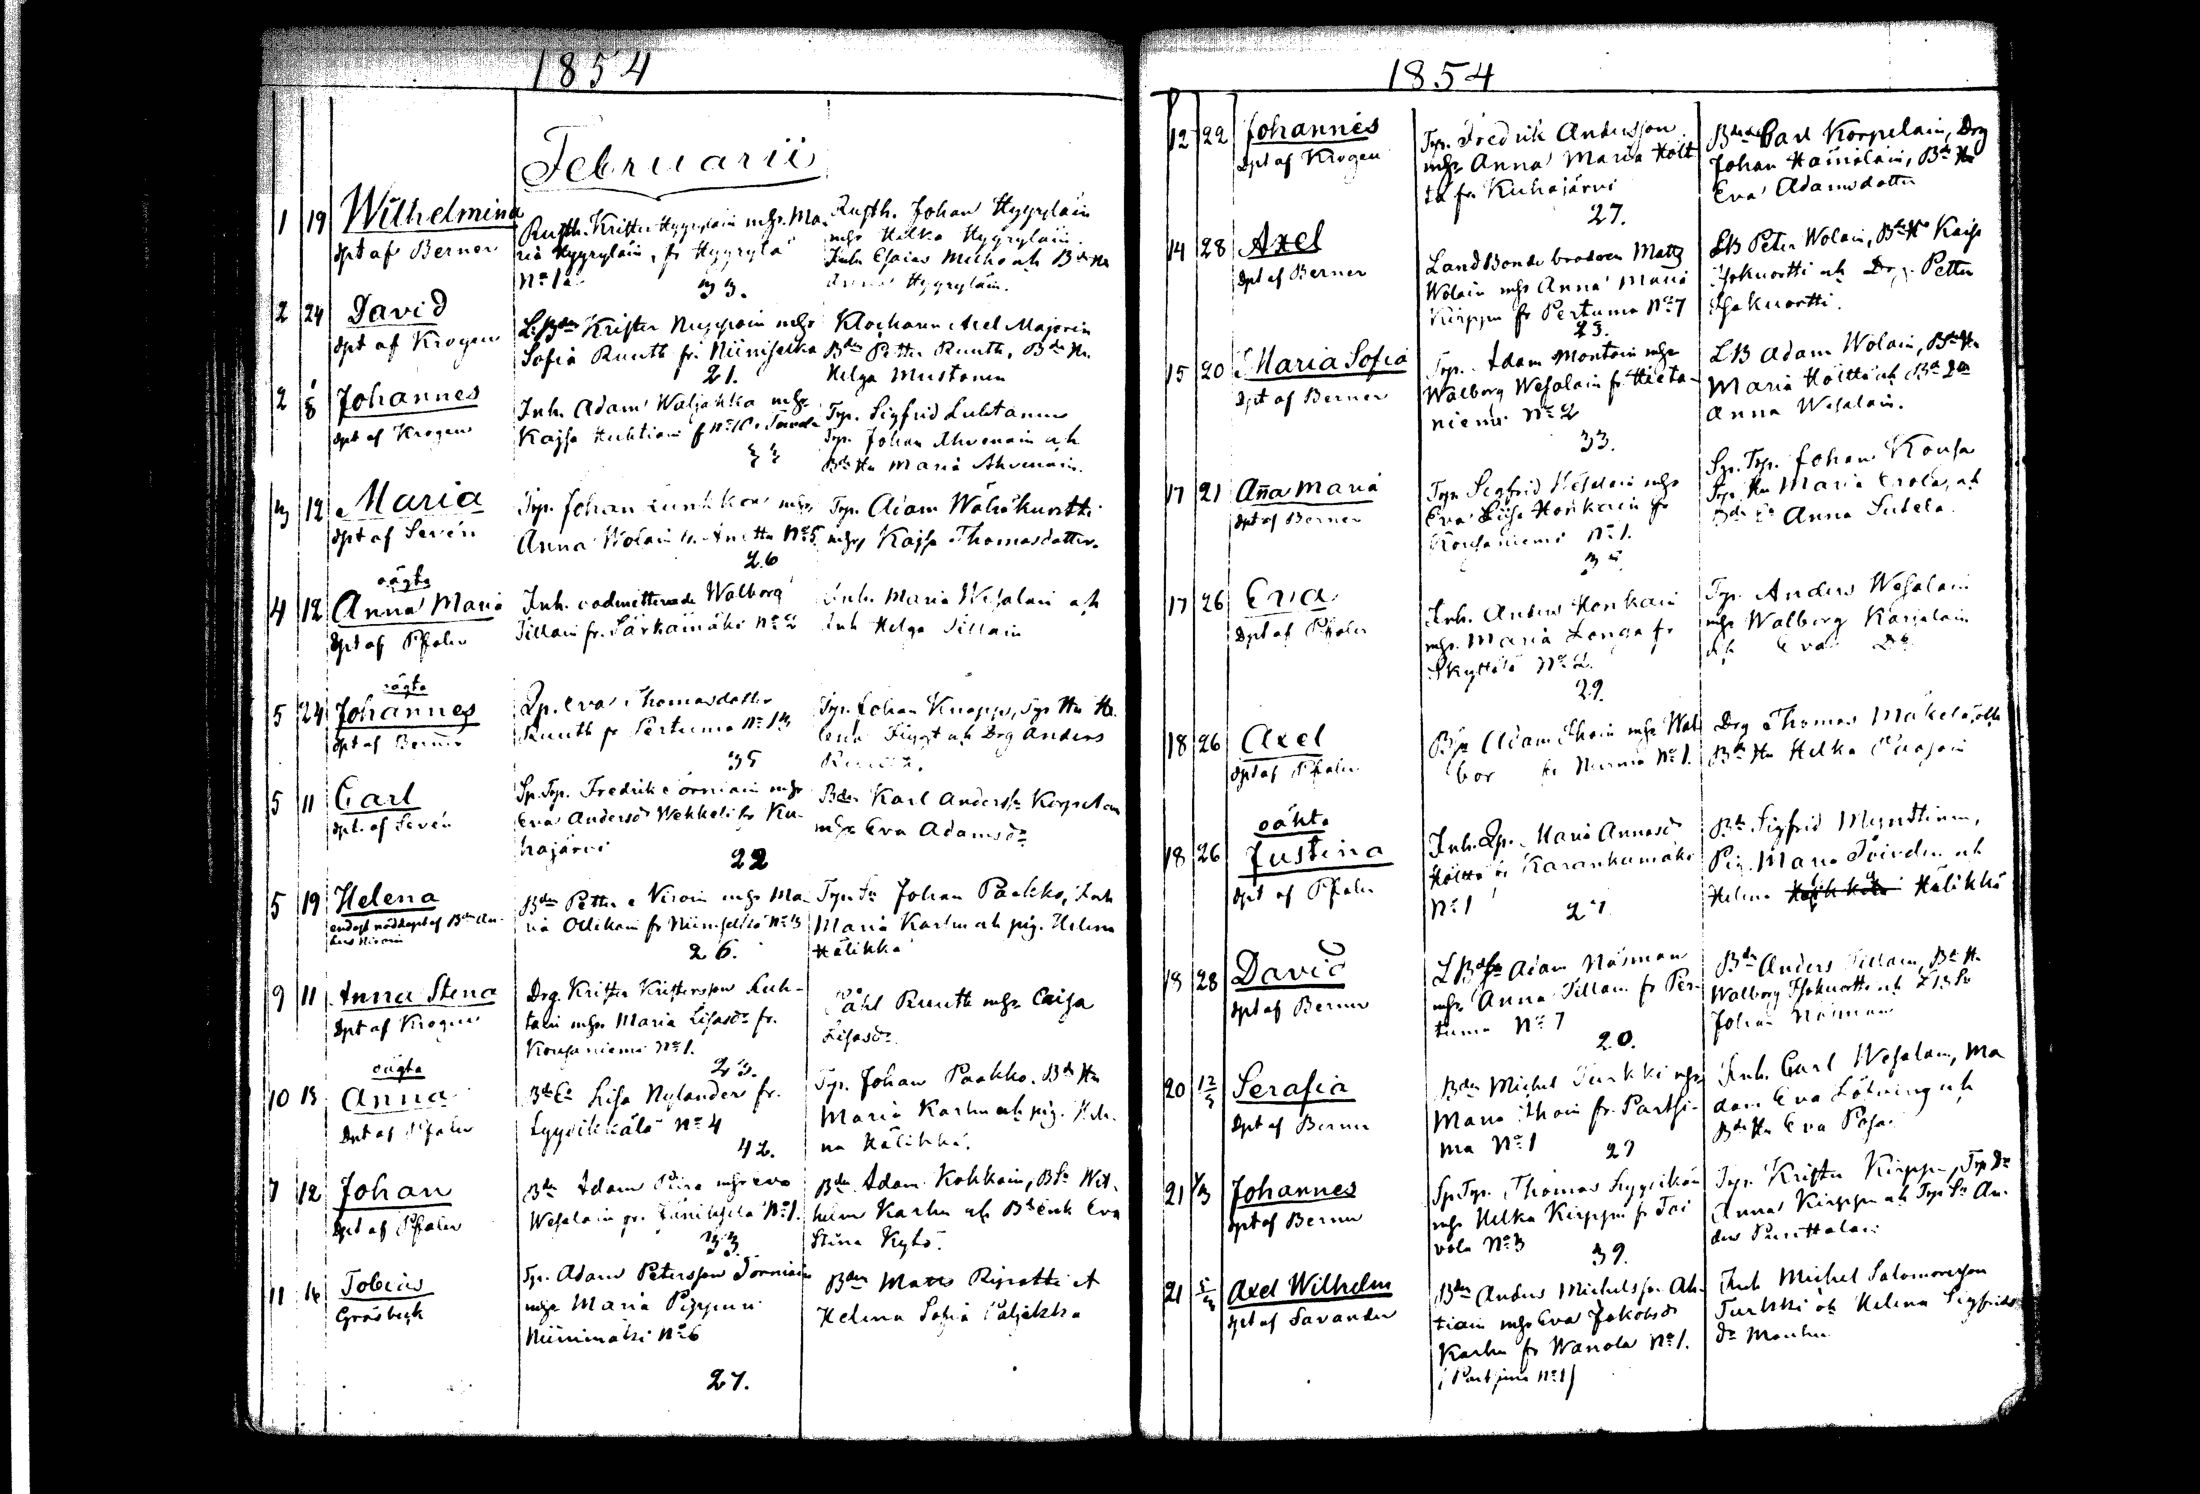 1854
Februarii
1 19 Wilhelmina
dpt af Berner
Rusth. Krister Hyyryläin mhr. Ma-
ria Hyyryläin, fr Hyyrylä
No 12
33.
Rusth. Johan Hyyryläin
mhr Helka Hyyryläin.
Inh. Esaias Mielko och Bde Hu
Anna Hyyryläin.
2 24 David
dpt af Krogen
L. Bdn Krister Nuppoin mhr
Sofia Ruuth fr. Niiniselkä
21.
Klockaren Axel Majorin
Bdn Petter Ruuth, Bde Hu.
Helga Mustonen
2 8 Johannes
dpt af Krogen
Inh. Adam Waljakka mhr
Kajsa Huhtiain f No 10
33
Trp. Sigfrid Luhtanen
Trp. Johan Ahvenain och
Bde Hu Maria Ahvenain.
3 12 Maria
dpt af Sevén
Trp. Johan Lunkka mhr
Anna Wolain No 5
26
Trp. Adam Wäliskuortti
mhr Kajsa Thomasdotter
4 12 oägta
Anna Maria
dpt af Pfaler
Inh. oadmitterade Walborg
Tillain fr. Särkämäki No 2
Inh. Maria Wesalain och
Inh Helga Tillain
5 24 oägta
Johannes
dpt af Berner
Qp. Eva Thomasdotter
Ruuth fr Pertuma No 13
35
Trp. Johan Knapp, Trp Hu He-
lena och Drg Anders
5 11 Carl
dpt. af Sevén
Sp. Trp. Fredrik Torniain mhr
Eva Andersdr Wehkoli fr Ku-
hajärvi
22
Bdn Karl Anderss Korpelain
mhr Eva Adamsdr
5 19 Helena
endast nöddöpt af Bdn An-
ders Niroin
Bdn Petter Niroin mhr Ma-
ria Ollikain fr Niiniselkä No 3
26.
Trp. Sn Johan Paakko, Inh
Maria Karhu och pig. Helena
Hälikkä
9 11 Anna Stena
dpt af Krogen
Drg. Krister Kristersson Luh-
tain mhr Maria Lisasdr fr.
Kousaniemi No 1.
23.
Påhl Ruuth mhr Caisa
Lisasdr
10 13 oägta
Anna
dpt af Pfaler
Bde Lisa Nylander fr.
Lyytikkälä No 4
42.
Trp. Johan Paakko. Bde Hu
Maria Karhu och pig. Hele-
na Hälikkä.
7 12 Johan
dpt af Pfaler
Bdn Adam Piira mhr Eva
Wesalain fr. No 1.
33.
Bdn Adam Kokkoin, B Sn Wil-
helm Karhu och Bde enk Eva
Stina Kytö.
11 16 Tobias
Gråsbeck
Trp. Adam Petersson Torniain
mhr Maria Pippuri
Niinimäki No 6
27.
Bdn Matts Ripatti et
Helena Sofia Paljakka
1854
12 22 Johannes
dpt af Krogen
Trp. Fredrik Andersson
mhr Anna Maria Holt
ta fr Kuhajärvi
27.
Bde Carl Korpelain, Drg
Johan Hämäläin, Bde Hu
Eva Adamsdotter
14 28 Axel
dpt af Berner
Land Bonde brodren Matts
Wolain mhr Anna Maria
Kirppu fr Pertuma No 7
23.
LB Peter Wolain, Bde Hu Kaisa
Isokuortti och Drg. Petter
Isokuortti.
15 20 Maria Sofia
dpt af Berner
Trp. Adam Montoin mhr
Walborg Wesalain fr. Hieta-
niemi No 2
33.
LB Adam Wolain, Bde Hu
Maria Hölttä och Bde Dr
Anna Wesalain.
17 21 Aña Maria
dpt af Berner
Trp Sigfrid Wesalain mhr
Eva Lisa Honkain fr
Kousaniemi No 1.
Sp. Trp. Johan Kousa
Trp. Hu Maria Erola, och
Bde Anna Sutela
17 26 Eva
dpt af Pfaler
Inh. Anders Honkain
mhr. Maria Longa fr
Skyttälä No 2.
29.
Trp. Anders Wesalain
mhr Walborg Karjalain
och Eva Do
18 26 Axel
dpt af Pfaler
Bn Adam Ihoin mhr Wal
bor fr Nurmis No 1.
Drg Thomas Mäkelä, och
Bde Hu Helka Paajain
18 26 oäkta
Justina
dpt af Pfaler
Inh. Qp. Maria Annasdr
Hölttä fr Karankamäki
No 1
27
Bde Sigfrid Mynttinen,
Pig. Maria Toivoin och
Helena Hälikkä
18 28 David
dpt af Berner
L Bdn Adam Näsman
mhr Anna Tillain fr Per-
tuma No 7
20.
Bdn Anders Tillain, Bde Hu
Walborg Isokuortti och LB Sn
Johan Näsman
20 12/3 Serafia
dpt af Berner
Bdn Michel Turkki mhr
Maria Ihoin fr. Partsi-
ma No 1 27
Inh. Carl Wesalain, Ma
dam Eva Löfving och
Bde Hu Eva Posa.
21 1/3 Johannes
dpt af Berner
Sp Trp. Thomas Lyytikäin
mhr Helka Kirppu fr Toi
vola No 3 39.
Trp. Krister Kirppu, Trp Dr
Anna Kirppu och Trp Sn An-
ders Punttalain
21 5/3 Axel Wilhelm
dpt af Savander
Bdn Anders Michelsson Ah-
tiain mhr Eva Jakobsdr
Karhu fr Wanola No 1.
(Partsima No 1)
Inh Michel Salomonsson
Turkki och Helena Sigfrids
dr Monton